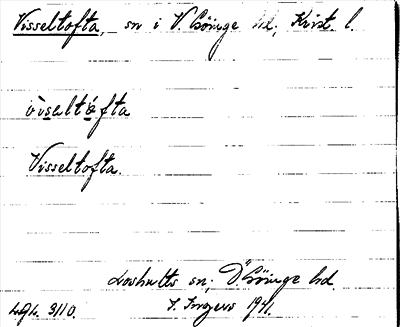 Visseltofta, sn i V. Göinge hd, Krist. l.
vìseltófta
Visseltofta.
Loshults sn; Ö. Göinge hd.
I. Ingers 1941.
LGL. 3110.